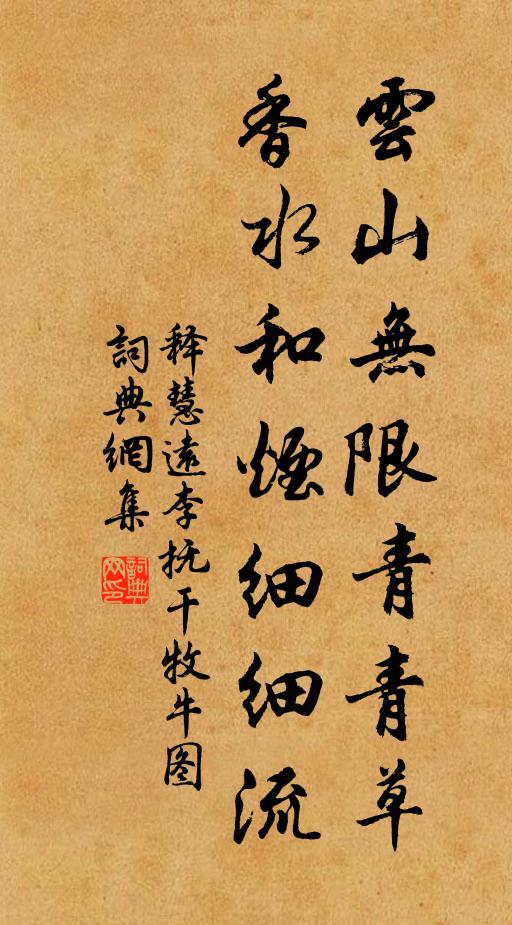 雲山無限青青草
香水和煙細細流
释慧遠李抚干牧牛图
詞典網集
詞典網印